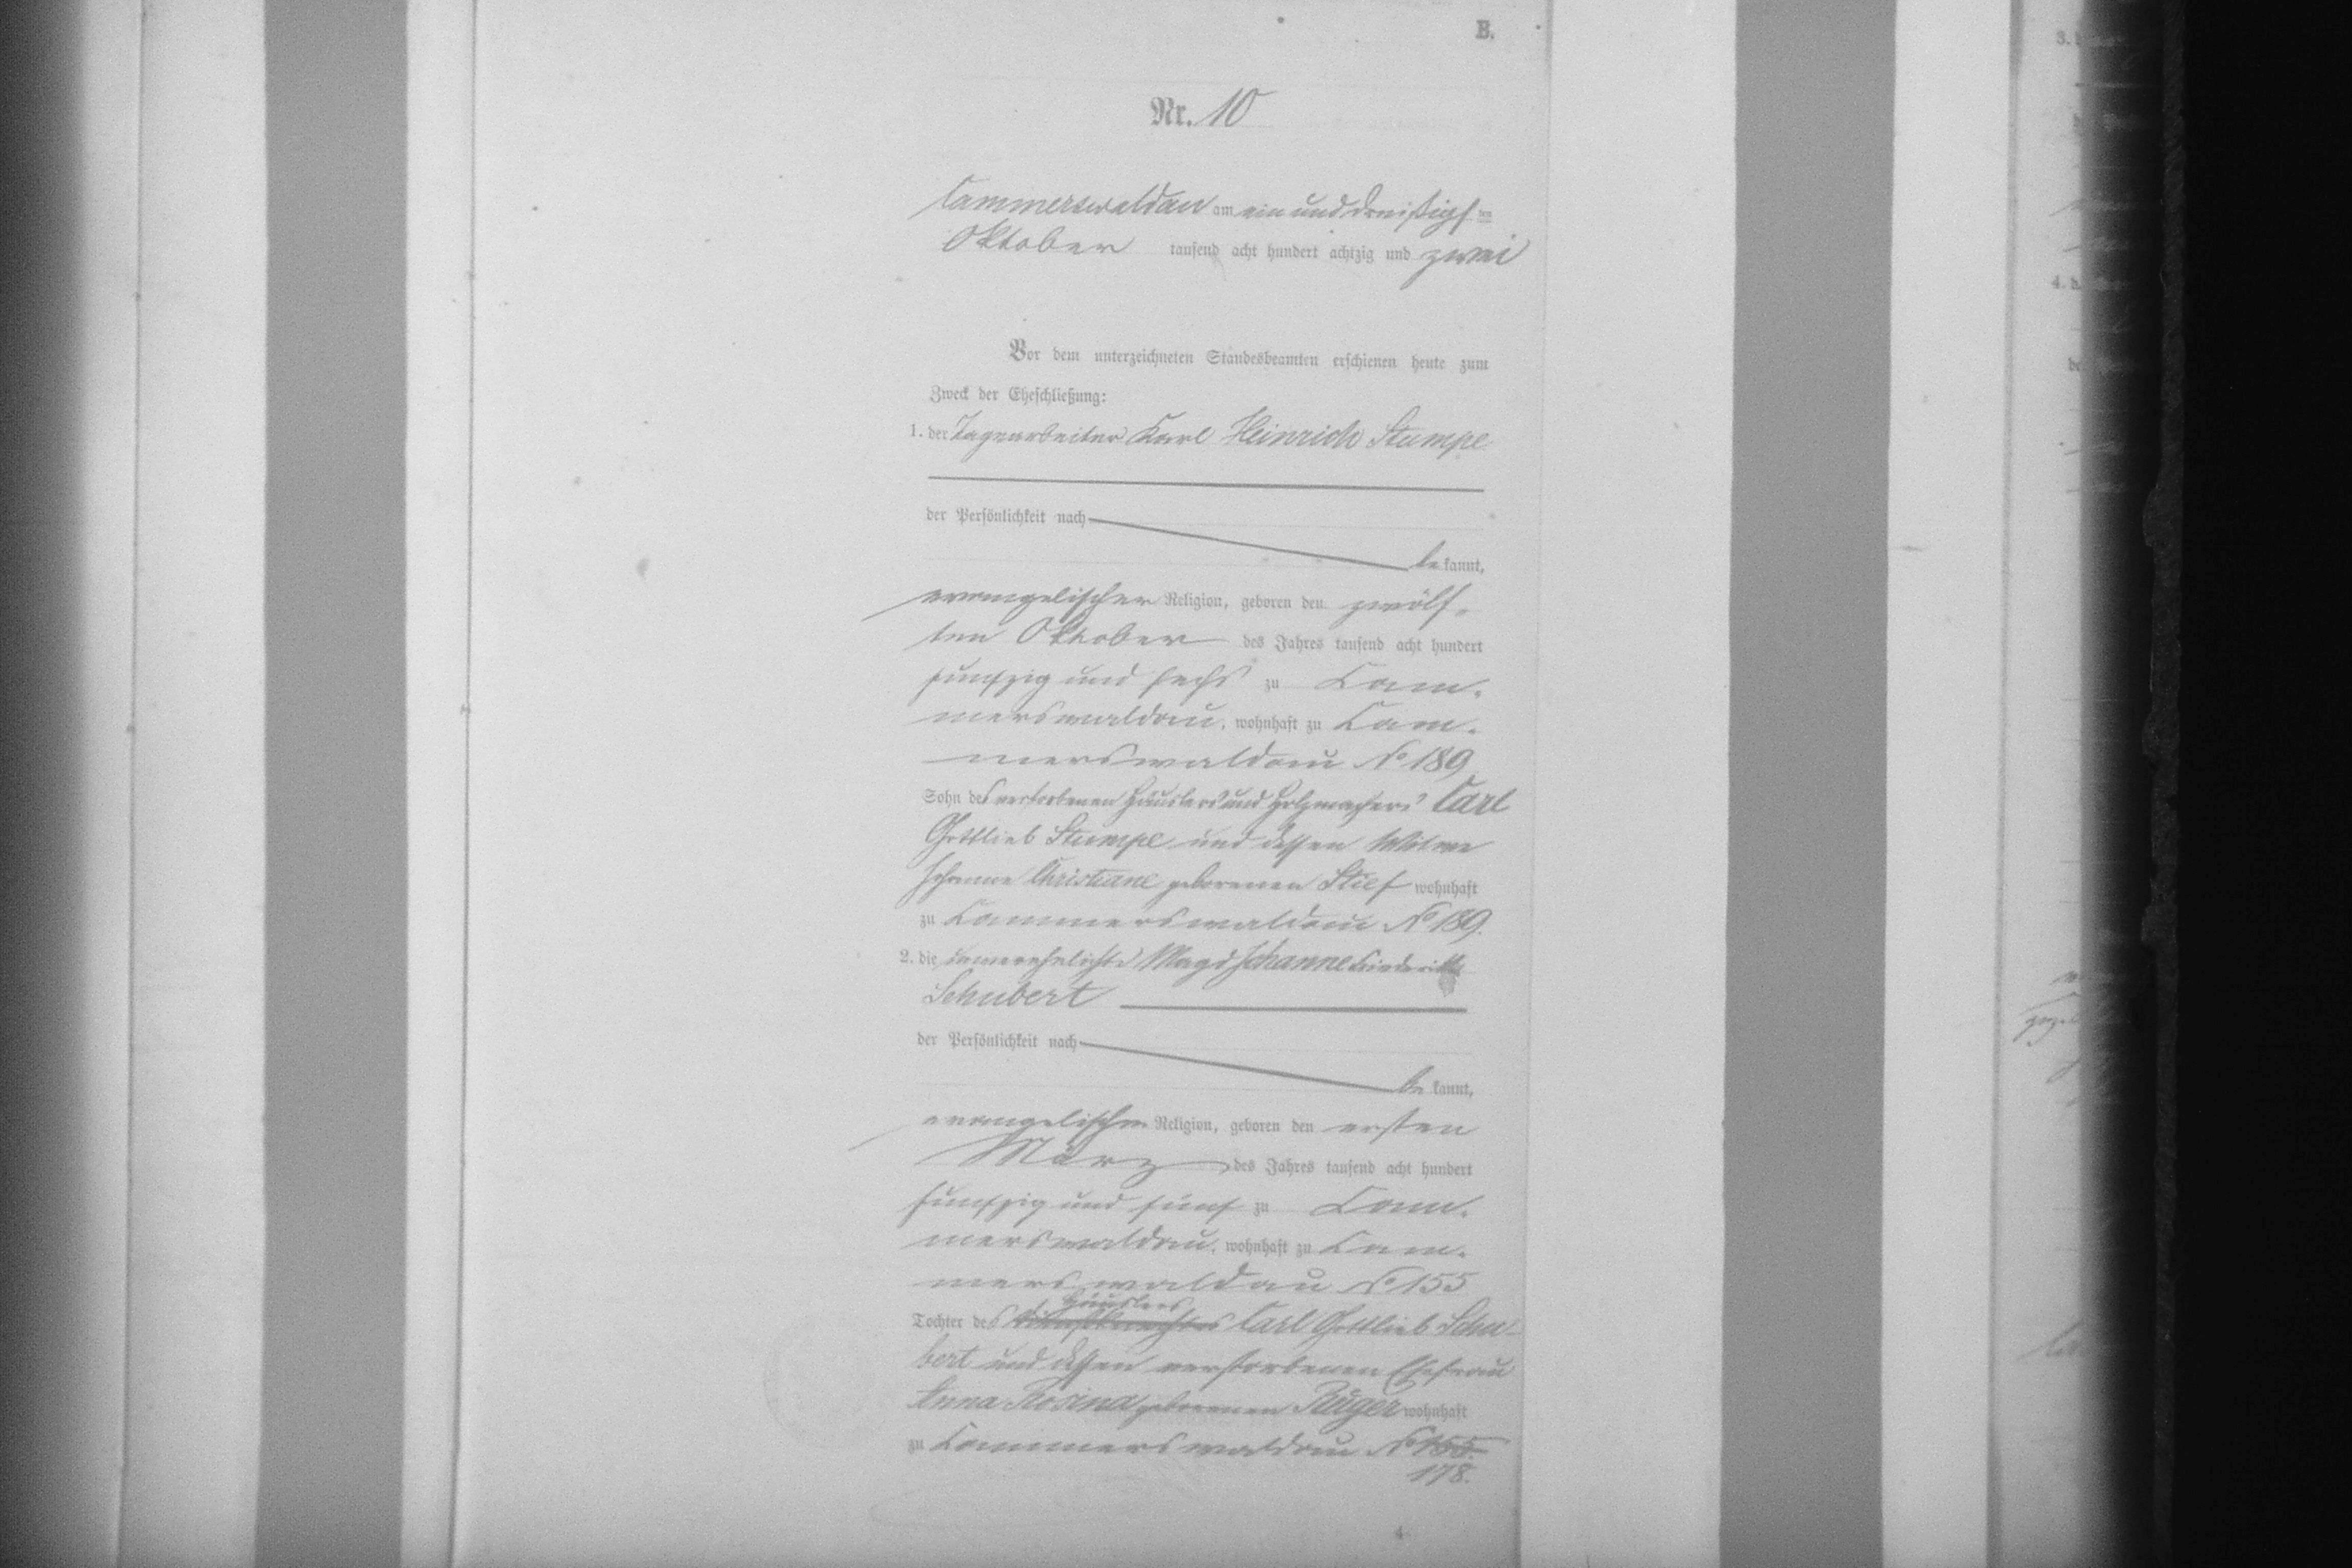 B.
Nr. 10
Cammerswaldau am ein und dreißigsten
Oktober tausend acht hundert achtzig und zwei
Vor dem unterzeichneten Standesbeamten erschienen heute zum
Zweck der Eheschließung:
1. der Tagearbeiter Karl Heinrich Stumpe
der Persönlichkeit nach
be kannt,
evangelischer Religion, geboren den zwölf-
ten Oktober des Jahres tausend acht hundert
fünfzig und sechs zu Cam-
merswaldau, wohnhaft zu Cam-
merswaldau No 189
Sohn des verstorbenen Häuslers und Holzmachers Carl
Gottlieb Stumpe und dessen Witwe
Johanne Christiane geborenen Stief wohnhaft
zu Cammerswaldau No 189.
2. die unverehelichte Magd Johanne Friederike
Schubert
der Persönlichkeit nach
be kannt,
evangelischer Religion, geboren den ersten
März des Jahres tausend acht hundert
fünfzig und fünf zu Cam-
merswaldau, wohnhaft zu Cam-
merswaldau No 155
Häuslers
Tochter des Carl Gottlieb Schu-
bert und dessen verstorbenen Ehefrau
Anna Rosina geborenen Rüger wohnhaft
zu Cammerswaldau No 155.
178.
4